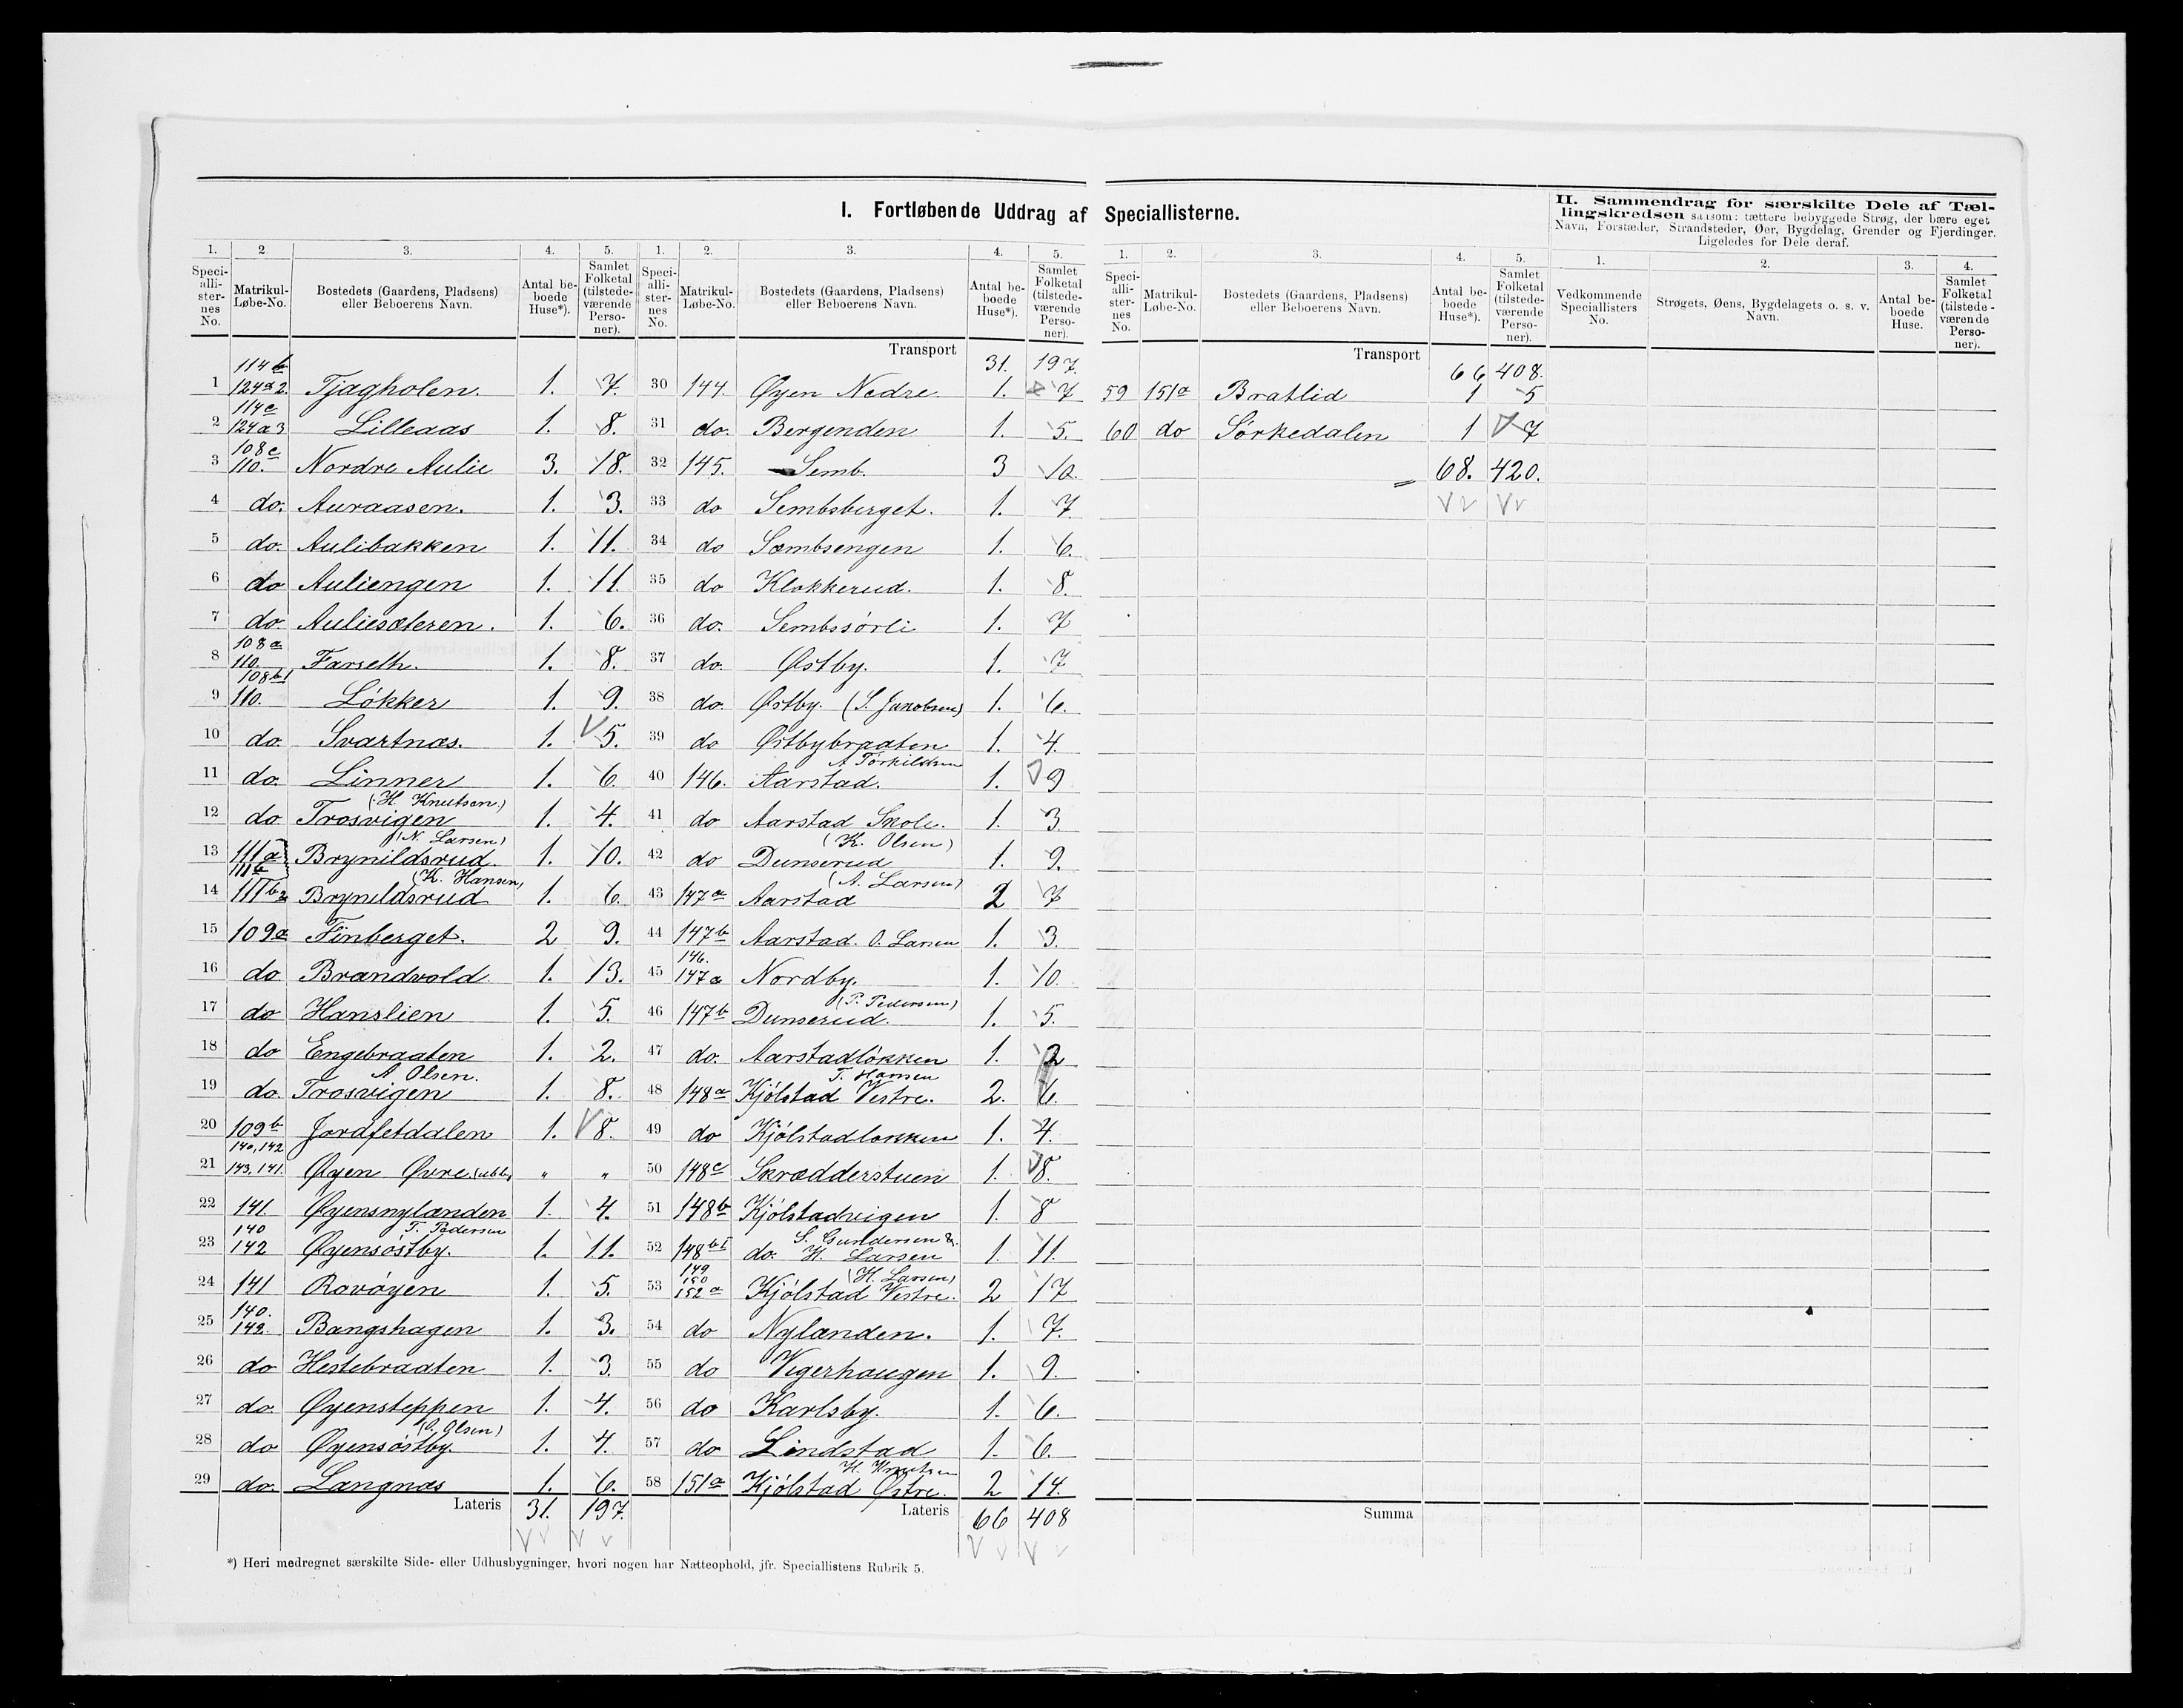 I. Fortløbende Uddrag af Speciallisterne.
II. Sammendrag for særskilte Dele af Tæl-
lingskredsen saasom: tættere bebyggede Strøg, der bære eget
Navn, Forstæder, Strandsteder, Øer, Bygdelag, Grender og Fjerdinger.
Ligeledes for Dele deraf.
1. 2. 3. 4. 5.
Speciallisternes No. Matrikul-Løbe-No. Bostedets (Gaardens, Pladsens) eller Beboerens Navn. Antal beboede Huse*). Samlet Folketal (tilstedeværende Personer).
1 114b 124a2. Tjagholen. 1. 7.
2 114c 124a3 Lilleaas 1. 8.
3 108c 110. Nordre Aulie 3. 18.
4 do. Auraasen. 1. 3.
5 do. Aulibakken 1. 11.
6 do Auliengen 1. 11.
7 do. Auliesæteren. 1. 6.
8 108a 110. Farseth. 1. 8.
9 108b1 110. Løkker 1. 9.
10 do. Svartnæs. 1. 5.
11 do. Linner 1. 6.
12 do Trosvigen (H. Knutsen.) 1. 4.
13 111a 111b Brynildsrud. (N. Larsen) 1. 10.
14 111b2 Brynildsrud (K. Hansen) 1. 6.
15 109a Finberget. 2 9.
16 do Brandvold 1. 13.
17 do Hanslien 1. 5.
18 do Engebraaten 1. 2.
19 do. Trosvigen A Olsen. 1. 8.
20 109b Jordfetdalen 1. 8.
21 140, 142 143, 141. Øyen Øvre (ubb) " "
22 141. Øyensnylænden 1. 4.
23 140 142 Øyensøstby. T. Pedersen 1. 11.
24 141 Rovøyen 1. 5.
25 140. 142. Bangshagen 1. 3.
26 do Hestebraaten 1. 3.
27 do. Øyensteppen 1. 4.
28 do Øyensøstby. (O. Olsen) 1. 4.
29 do. Langnæs 1. 6.
Lateris 31. 197.
1. 2. 3. 4. 5.
Speciallisternes No. Matrikul-Løbe-No. Bostedets (Gaardens, Pladsens) eller Beboerens Navn. Antal beboede Huse*). Samlet Folketal (tilstedeværende Personer).
Transport 31. 197.
30 144. Øyen Nedre. 1. 7
31 do. Bergenden 1. 5.
32 145. Semb. 3 10.
33 do Sembsberget. 1. 7.
34 do Sæmbsengen 1. 6.
35 do Klokkerud. 1. 8.
36 do. Sembssørli 1. 7
37 do. Østby. 1. 7
38 do. Østby. (S. Jakobsen) 1. 6.
39 do Østbybraaten 1. 4.
40 146. Aarstad. A Torkildsen 1. 9
41 do Aarstad Skole. 1. 3.
42 do Dunserud (K. Olsen) 1. 9.
43 147a Aarstad (A. Larsen) 2 7
44 147b Aarstad. O. Larsen 1. 3.
45 146. 147a Nordby. 1. 10.
46 147b Dunserud. (P. Pedersen) 1. 5.
47 do. Aarstadløkken 1. 2
48 148a Kjølstad Vestre. T. Hansen 2. 6.
49 do Kjølstadløkken 1. 4.
50 148c Skrædderstuen 1. 8.
51 148b Kjølstadvigen 1. 8
52 148bI do. S. Gundersen & H. Larsen 1. 11.
53 149 150 152a Kjølstad Vestre. (H. Larsen) 2 17
54 do Nylænden. 1. 7.
55 do Vigerhaugen 1. 9.
56 do Karlsby. 1. 6.
57 do Lindstad 1. 6.
58 151a Kjølstad Østre. H. Knutsen 2 14.
Lateris 66 408
1. 2. 3. 4. 5.
Speciallisternes No. Matrikul-Løbe-No. Bostedets (Gaardens, Pladsens) eller Beboerens Navn. Antal beboede Huse*). Samlet Folketal (tilstedeværende Personer).
Transport 66 408.
59 151a Bratlid 1 5
60 do Sørkedalen 1 7
68. 420.
Summa
1. 2. 3. 4.
Vedkommende Speciallisters No. Strøgets, Øens, Bygdelagets o. s. v. Navn. Antal beboede Huse. Samlet Folketal (tilstedeværende Personer).
*) Heri medregnet særskilte Side- eller Udhusbygninger, hvori nogen har Natteophold, jfr. Speciallistens Rubrik 5.